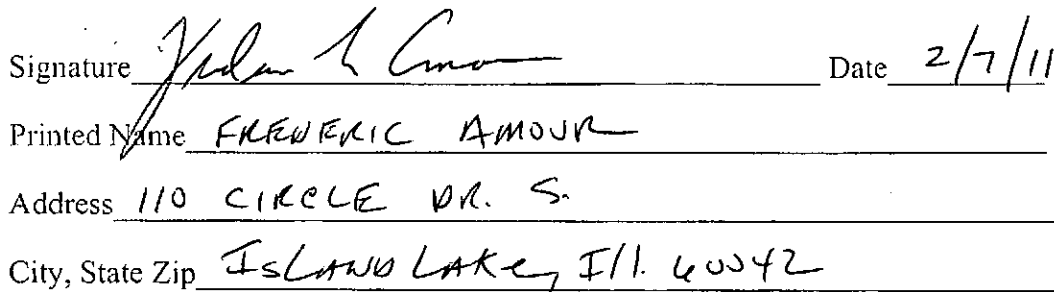 Signature Date 2/7/11
Printed Name FREDERIC AMOUR
Address 110 CIRCLE DR. S.
City, State Zip ISLAND LAKE, Ill. 60042